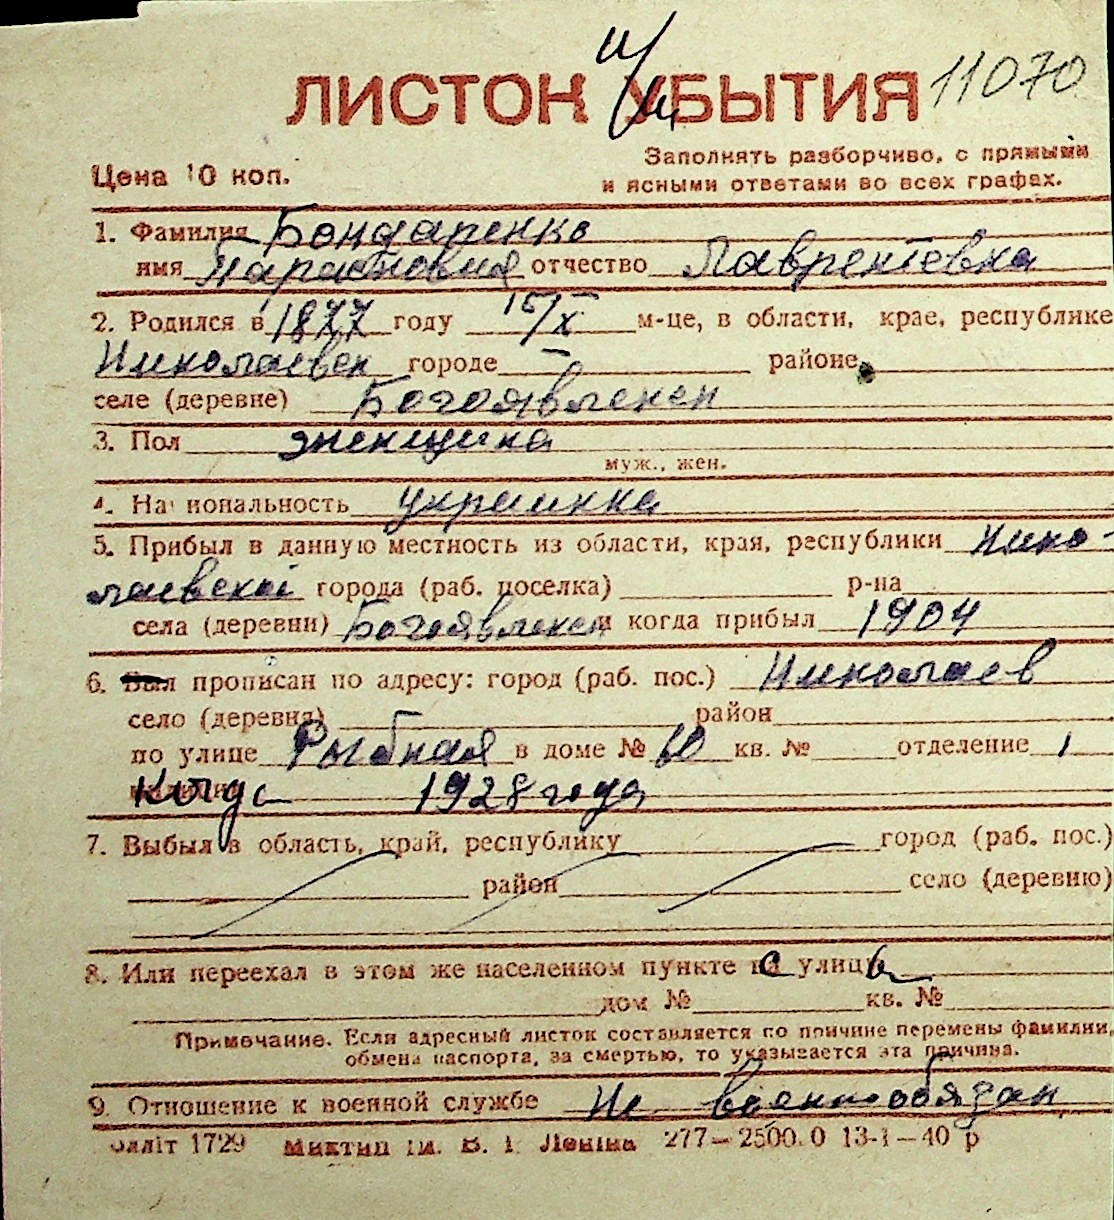 ЛИСТОК УБЫТИЯ 11070
Цена 10 коп.
Заполнять разборчиво, с прямыми
и ясными ответами во всех графах.
1. Фамилия Бондаренко
имя отчество Лаврентевна
2. Родился в 1877 году 15/X м-це, в области, крае, республике
Николаевск городе — районе
селе (деревне) Богоявленск
3. Пол женщина
муж., жен.
4. Национальность украинка
5. Прибыл в данную местность из области, края, республики Нико-
лаевской города (раб. поселка) р-на
села (деревни) Богоявленск и когда прибыл 1904
6. Был прописан по адресу: город (раб. пос.) Николаев
село (деревня) район
по улице Рыбная в доме № 60 кв. № отделение 1
милиции Когда 1928 года
7. Выбыл в область, край, республику город (раб. пос.)
район село (деревню)
8. Или переехал в этом же населенном пункте на улицу
дом № кв. №
Примечание. Если адресный листок составляется по причине перемены фамилии,
обмена паспорта, за смертью, то указывается эта причина.
9. Отношение к военной службе Не военнообязан
1729 Миктип ім. В. І. Леніна 277—2500.0 13-I—40 р